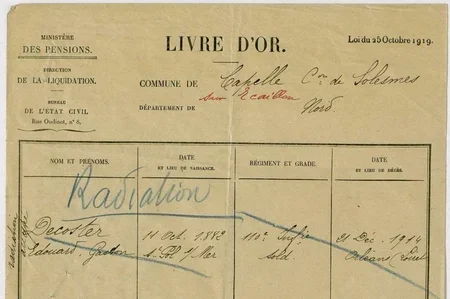 MINISTÈRE
DES PENSIONS.
DIRECTION
DE LA LIQUIDATION.
BUREAU
DE L'ÉTAT CIVIL
Rue Oudinot, n° 8.
LIVRE D'OR.
Loi du 25 Octobre 1919.
COMMUNE DE Capelle Con de Solesmes
sur Ecaillon
DÉPARTEMENT DE Nord
NOM ET PRÉNOMS. DATE ET LIEU DE NAISSANCE. RÉGIMENT ET GRADE. DATE ET LIEU DE DÉCÈS.
Radiation
Decoster 11 Oct. 1882 110e Infie 21 Déc. 1914
Edouard, Gaston St Pol s/ Mer sold Orléans (Loiret
radiation